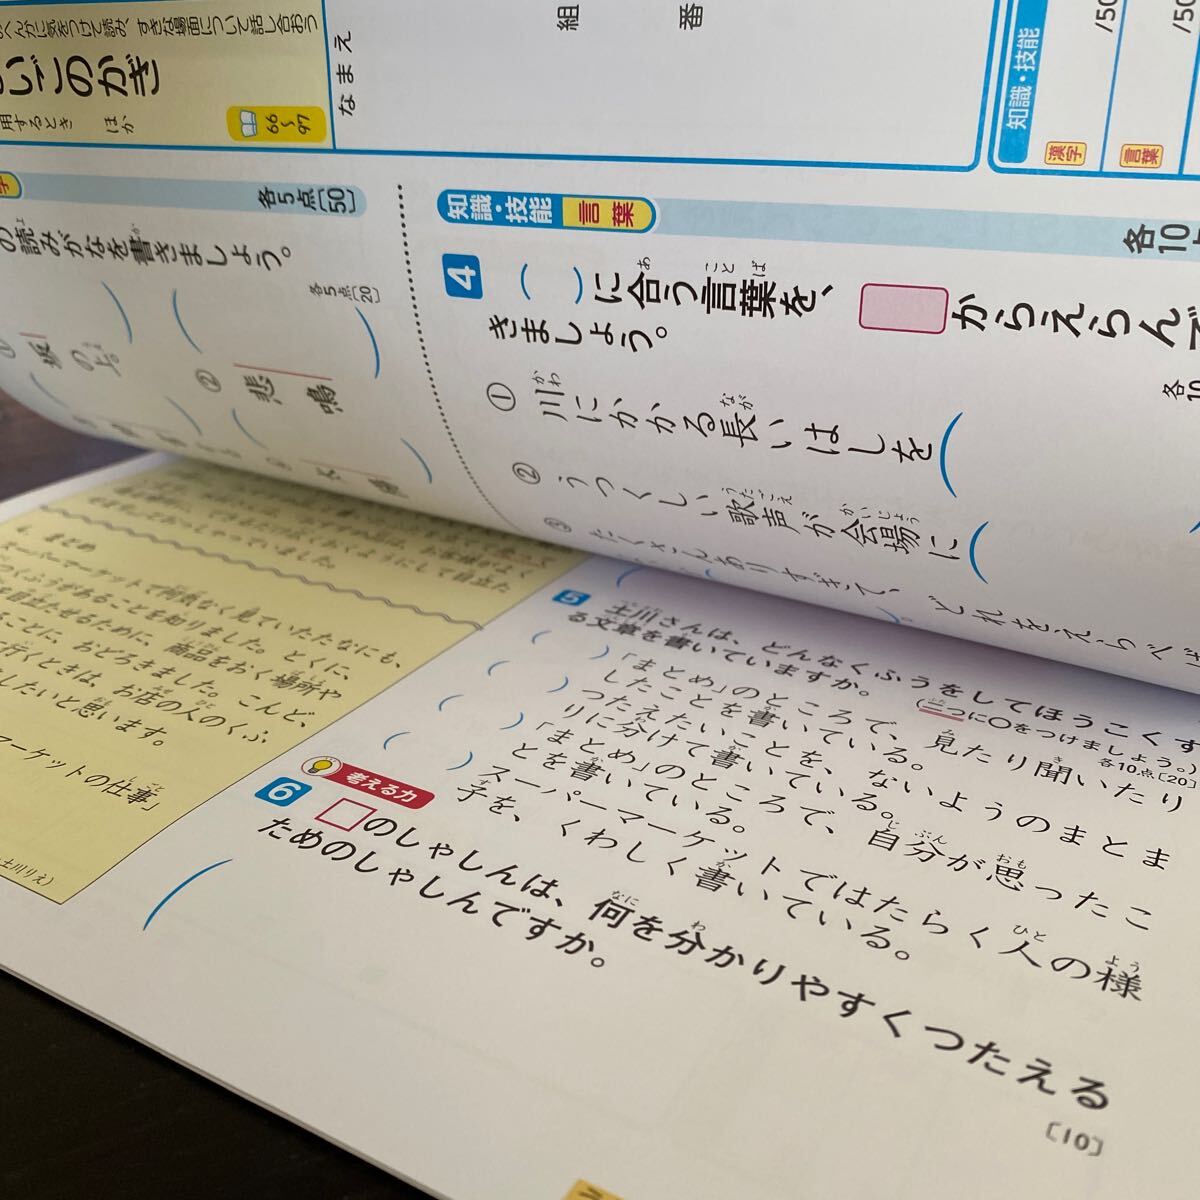 気をつけて読み、すきな場面について話し合おう
いごのかぎ
用するとき ほか
66〜97
なまえ
組
番
知識・技能
漢字
/50
言葉
/50
各5点〔50〕
の読みがなを書きましょう。
各5点〔20〕
坂の上
② 悲鳴
知識・技能 言葉
各10
4 ( )に合う言葉を、 からえらんで
きましょう。
各10
① 川にかかる長いはしを(
② うつくしい歌声が会場に(
③ たくさんありすぎて、どれをえらべば
4. まとめ
スーパーマーケットで何気なく見ていたたなにも、
くふうがあることを知りました。とくに、
を目立たせるために、商品をおく場所や
ことに、おどろきました。こんど、
行くときは、お店の人のくふ
したいと思います。
マーケットの仕事」
土川りえ)
5 土川さんは、どんなくふうをしてほうこくす
る文章を書いていますか。(二つに〇をつけましょう。)
各10点〔20〕
( )「まとめ」のところで、見たり聞いたり
したことを書いている。
( )つたえたいことを、ないようのまとま
りに分けて書いている。
( )「まとめ」のところで、自分が思ったこ
とを書いている。
( )スーパーマーケットではたらく人の様
子を、くわしく書いている。
考える力
6 □のしゃしんは、何を分かりやすくつたえる
ためのしゃしんですか。
〔10〕